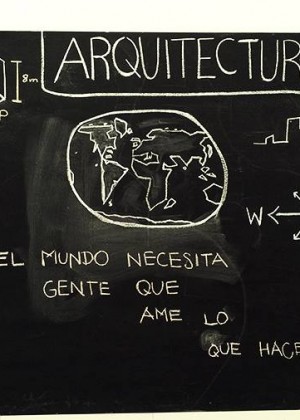 ARQUITECTUR
8m
P
W
EL MUNDO NECESITA
GENTE QUE
AME LO
QUE HACE